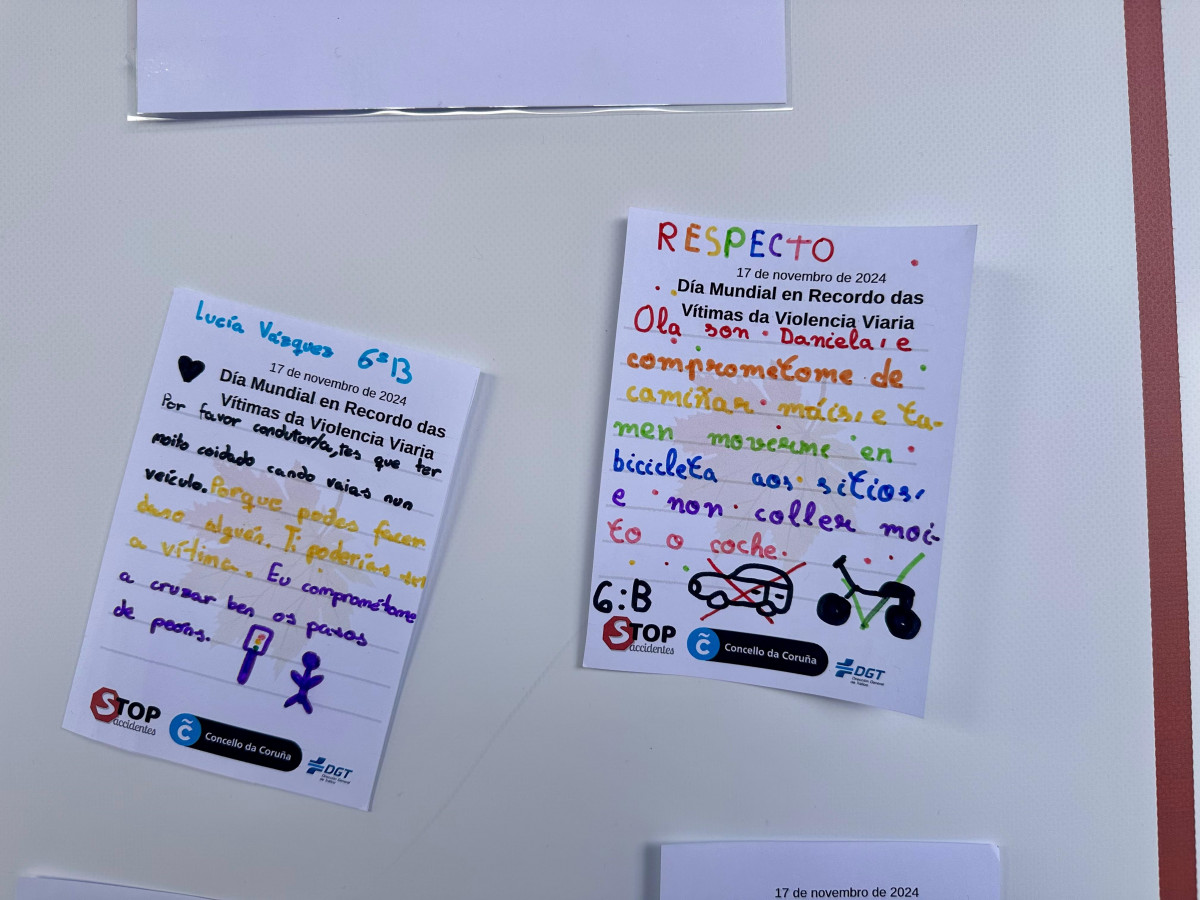 Lucía Vázquez 6ºB
17 de novembro de 2024
Día Mundial en Recordo das
Vítimas da Violencia Viaria
Por favor condutor/a, tes que ter
moito coidado cando vaias nun
veículo. Porque podes facer
dano alguén. Ti poderías ser
a vítima. Eu comprométome
a cruzar ben os pasos
de peóns.
STOP
accidentes
Concello da Coruña
DGT
Dirección General
de Tráfico
RESPECTO
17 de novembro de 2024
Día Mundial en Recordo das
Vítimas da Violencia Viaria
Ola son Daniela, e
comprometome de
camiñar máis, e ta-
men moverme en
bicicleta aos sitios,
e non coller moi-
to o coche.
6:B
STOP
accidentes
Concello da Coruña
DGT
Dirección General
de Tráfico
17 de novembro de 2024